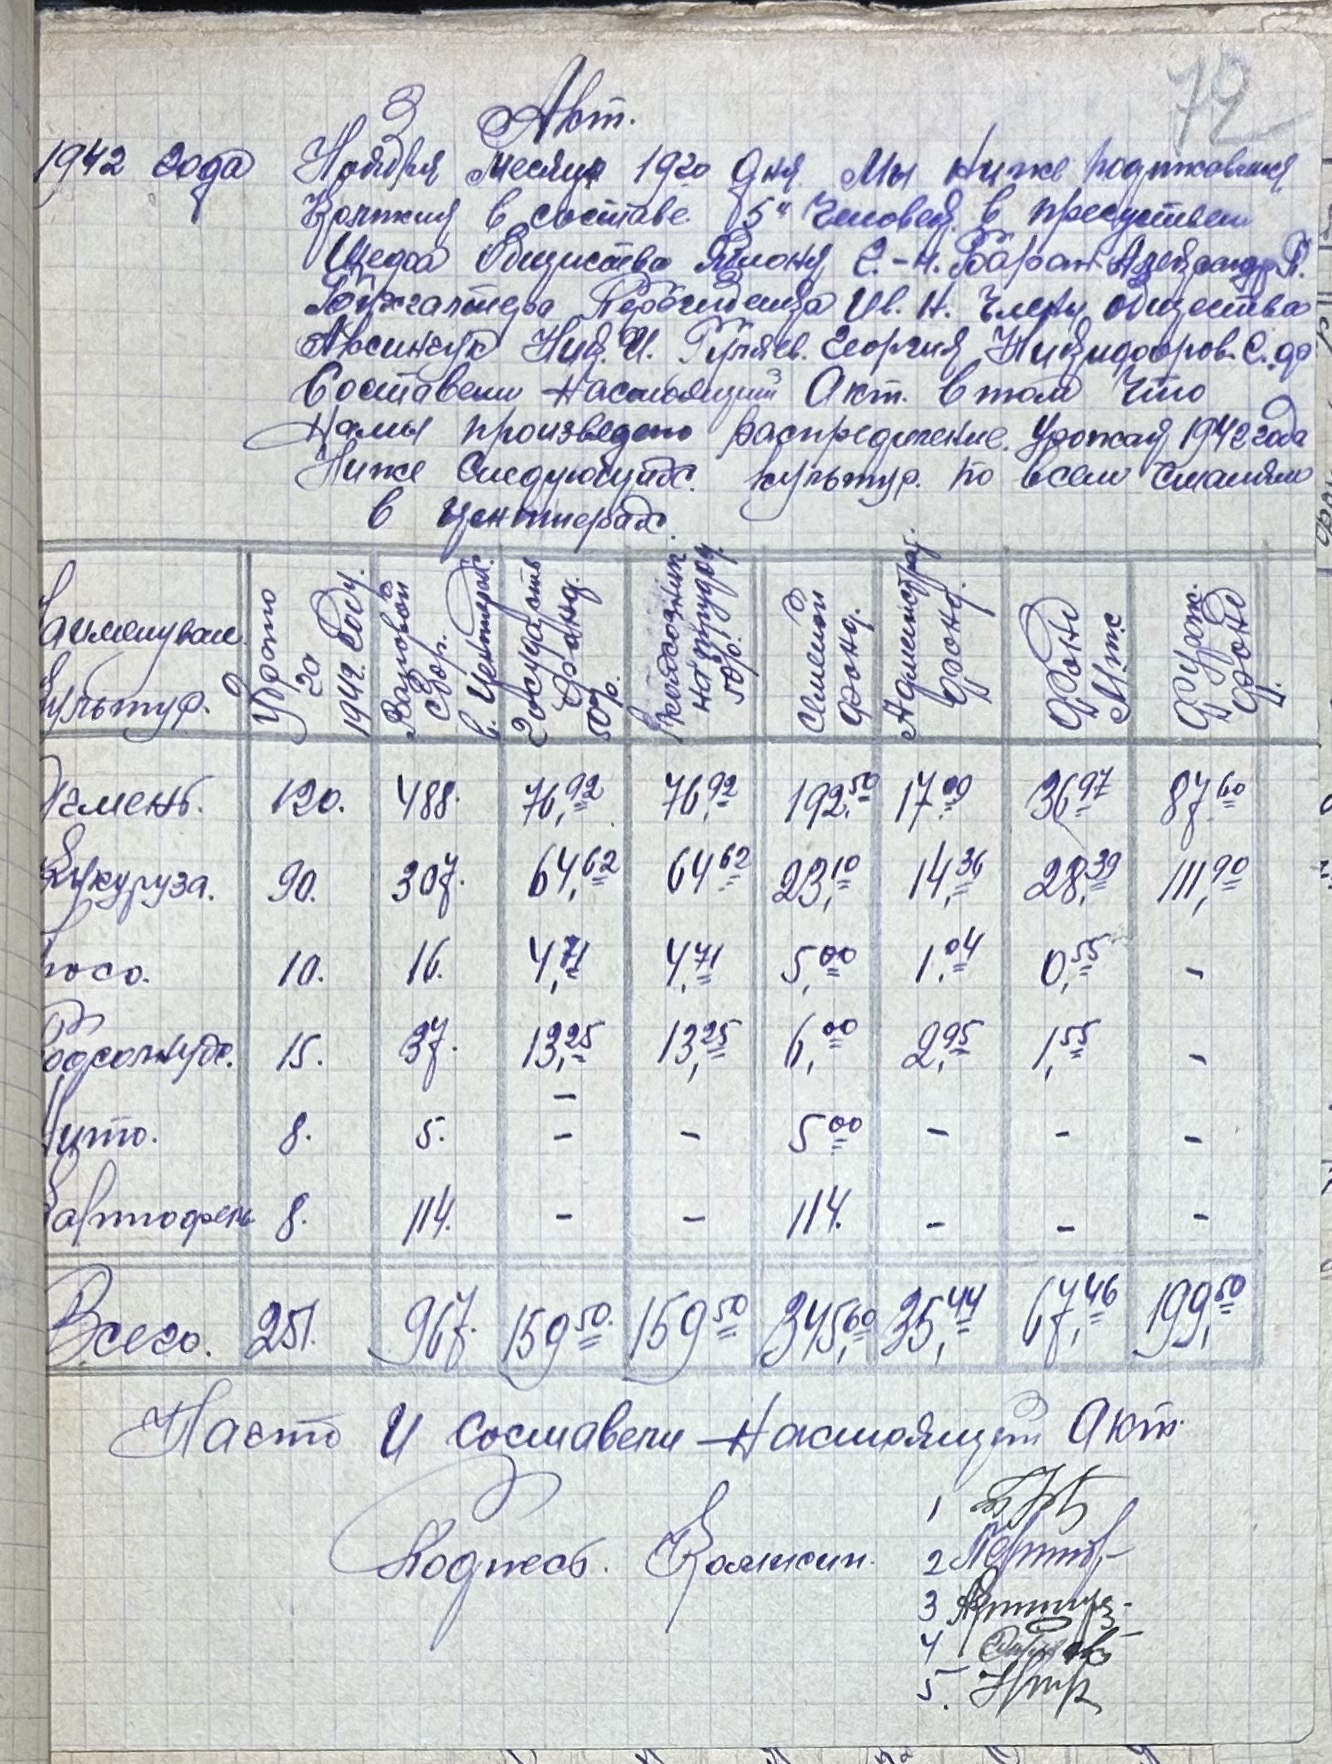 72
З Акт.
1942 года Ноября месяца 19го дня Мы ниже подписавшия
в составе "5" человек в присуствии
общества С.-Н. Баран Александр П.
Бухгалтера Ив. Н. Члены общества
Аксинчук Ник. И. Гуляев Георгия
Составели настоящий Акт. в том что
Нами произведено распределение. Урожая 1942 года
Ниже следующих. культур. по всем статям
в центнерах.
Наименуван. культур.
Убрато за 1942. году.
Валовой сбор. в. центнерах.
Государств фонд. 50%.
на трудод. 50%.
Семеной фонд.
Админестрат. фонд.
Фонд Мтс
Фураж. фонд.
Ячмень. 120. 488. 76,92 76,92 192,50 17,09 36,97 87,60
Кукуруза. 90. 307. 64,62 64,62 23,10 14,36 28,39 111,90
Просо. 10. 16. 4,71 4,71 5,00 1,04 0,55 -
Подсолнух. 15. 37. 13,25 13,25 6,00 2,95 1,55 -
Жито. 8. 5. - - 5,00 - - -
Картофель 8. 114. - - 114. - - -
Всего. 251. 967. 159,50 159,50 345,60 35,44 67,46 199,50
Насто и составели настоящий Акт.
Подпесь. Комисии.
1
2
3
4
5.